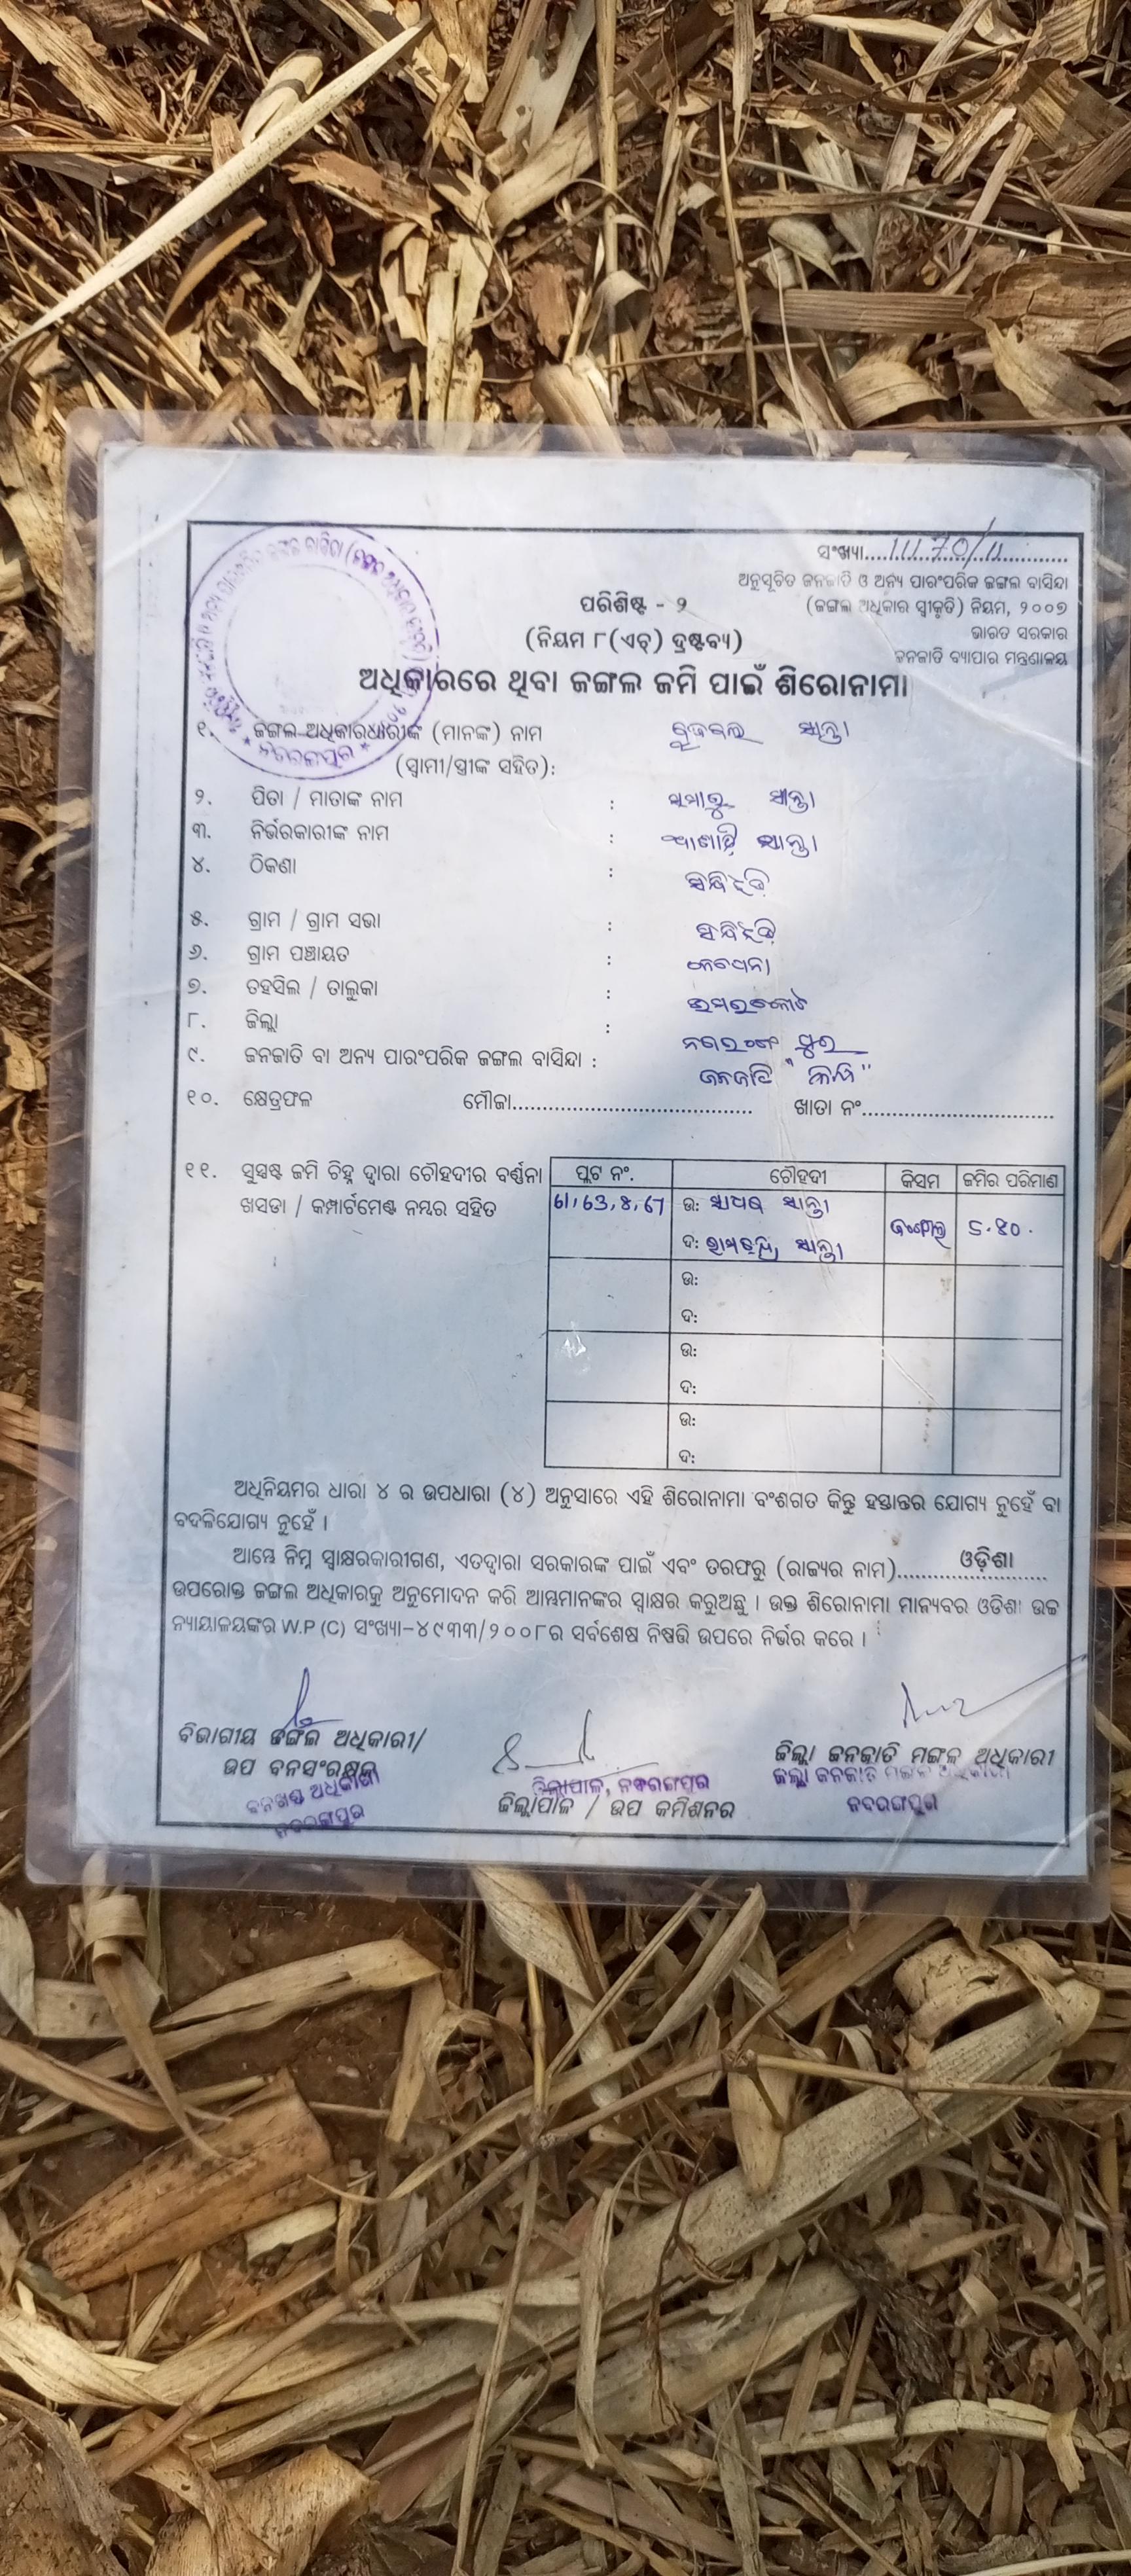 ସଂଖ୍ୟା....11170/11..............
ଅନୁସୂଚିତ ଜନଜାତି ଓ ଅନ୍ୟ ପାରଂପରିକ ଜଙ୍ଗଲ ବାସିନ୍ଦା
ପରିଶିଷ୍ଟ - ୨
(ଜଙ୍ଗଲ ଅଧିକାର ସ୍ୱୀକୃତି) ନିୟମ, ୨୦୦୭
(ନିୟମ ୮(ଏଚ୍) ଦ୍ରଷ୍ଟବ୍ୟ)
ଭାରତ ସରକାର
ଜନଜାତି ବ୍ୟାପାର ମନ୍ତ୍ରଣାଳୟ
ଅଧିକାରରେ ଥିବା ଜଙ୍ଗଲ ଜମି ପାଇଁ ଶିରୋନାମା
୧. ଜଙ୍ଗଲ ଅଧିକାରଧାରୀଙ୍କ (ମାନଙ୍କ) ନାମ ସାନ୍ତା
(ସ୍ୱାମୀ/ସ୍ତ୍ରୀଙ୍କ ସହିତ):
୨. ପିତା / ମାତାଙ୍କ ନାମ : ସମାରୁ ସାନ୍ତା
୩. ନିର୍ଭରକାରୀଙ୍କ ନାମ : ସାନ୍ତା
୪. ଠିକଣା :
୫. ଗ୍ରାମ / ଗ୍ରାମ ସଭା :
୬. ଗ୍ରାମ ପଞ୍ଚାୟତ :
୭. ତହସିଲ / ତାଲୁକା : ଉମରକୋଟ
୮. ଜିଲ୍ଲା : ନବରଙ୍ଗପୁର
୯. ଜନଜାତି ବା ଅନ୍ୟ ପାରଂପରିକ ଜଙ୍ଗଲ ବାସିନ୍ଦା : ଜନଜାତି
୧୦. କ୍ଷେତ୍ରଫଳ ମୌଜା........................................ ଖାତା ନଂ................................
୧୧. ସୁସ୍ପଷ୍ଟ ଜମି ଚିହ୍ନ ଦ୍ୱାରା ଚୌହଦୀର ବର୍ଣ୍ଣନା ପ୍ଲଟ ନଂ. ଚୌହଦୀ କିସମ ଜମିର ପରିମାଣ
ଖସଡା / କମ୍ପାର୍ଟମେଣ୍ଟ ନମ୍ବର ସହିତ 61,63,8,67 ଉ: ସାଧବ ସାନ୍ତା ଜଙ୍ଗଲ ୫.୫୦.
ଦ: ସାନ୍ତା
ଉ:
ଦ:
ଉ:
ଦ:
ଉ:
ଦ:
ଅଧିନିୟମର ଧାରା ୪ ର ଉପଧାରା (୪) ଅନୁସାରେ ଏହି ଶିରୋନାମା ବଂଶଗତ କିନ୍ତୁ ହସ୍ତାନ୍ତର ଯୋଗ୍ୟ ନୁହେଁ ବା
ବଦଳିଯୋଗ୍ୟ ନୁହେଁ ।
ଆମ୍ଭେ ନିମ୍ନ ସ୍ୱାକ୍ଷରକାରୀଗଣ, ଏତଦ୍ୱାରା ସରକାରଙ୍କ ପାଇଁ ଏବଂ ତରଫରୁ (ରାଜ୍ୟର ନାମ)........ଓଡ଼ିଶା........
ଉପରୋକ୍ତ ଜଙ୍ଗଲ ଅଧିକାରକୁ ଅନୁମୋଦନ କରି ଆମ୍ଭମାନଙ୍କର ସ୍ୱାକ୍ଷର କରୁଅଛୁ । ଉକ୍ତ ଶିରୋନାମା ମାନ୍ୟବର ଓଡିଶା ଉଚ୍ଚ
ନ୍ୟାୟାଳୟଙ୍କର W.P (C) ସଂଖ୍ୟା-୪୯୩୩/୨୦୦୮ର ସର୍ବଶେଷ ନିଷ୍ପତ୍ତି ଉପରେ ନିର୍ଭର କରେ ।
ବିଭାଗୀୟ ଜଙ୍ଗଲ ଅଧିକାରୀ/
ଉପ ବନସଂରକ୍ଷକ
ବନଖଣ୍ଡ ଅଧିକାରୀ
ନବରଙ୍ଗପୁର
ଜିଲ୍ଲାପାଳ, ନବରଙ୍ଗପୁର
ଜିଲ୍ଲାପାଳ / ଉପ କମିଶନର
ଜିଲ୍ଲା ଜନଜାତି ମଙ୍ଗଳ ଅଧିକାରୀ
ଜିଲ୍ଲା ଜନଜାତି ମଙ୍ଗଳ ଅଧିକାରୀ
ନବରଙ୍ଗପୁର